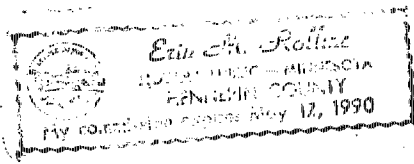 Erin M. Rollins
NOTARY PUBLIC — MINNESOTA
HENNEPIN COUNTY
My commission expires May 17, 1990